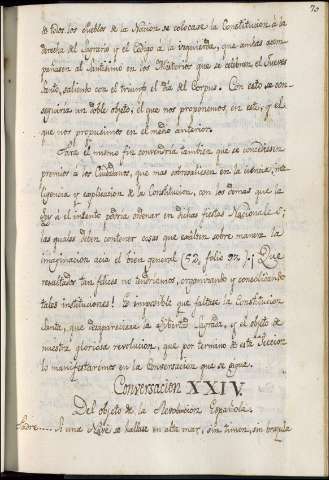 70
de todos los Pueblos de la Nacion se colocase la Constitucion a la
derecha del Sagrario y el Codigo a la izquierda, que ambas acom-
pañasen al Santisimo en los Misterios que se celebran el Jueves
Santo, saliendo con el triunfo el dia del Corpus. Con esto se con-
seguiria un doble objeto, el que nos proponemos en este, y el
que nos propusimos en el medio anterior.
Para el mismo fin convendria tambien que se concediesen
premios a los Ciudadanos, que mas sobresaliesen en la ciencia, inte-
ligencia y esplicacion de la Constitucion, con los demas que la
Ley á el intento podria ordenar en dichas fiestas Nacionales;
las quales deben contener cosas que exalten sobre manera la
imaginacion acia el bien general (52, folio 92). ¡Que
resultados tan felices no tendriamos, organizando y consolidando
tales instituciones! Es imposible que faltase la Constitucion
Santa, que desapareciese la Libertad Sagrada, y el objeto de
nuestra gloriosa revolucion, que por termino de esta Seccion
lo manifestaremos en la Conversacion que se sigue.
Conversacion XXIV.
Del objeto de la Revolucion Española.
Padre.... Si una Nave se hallase en alta mar, sin timon, sin brujula